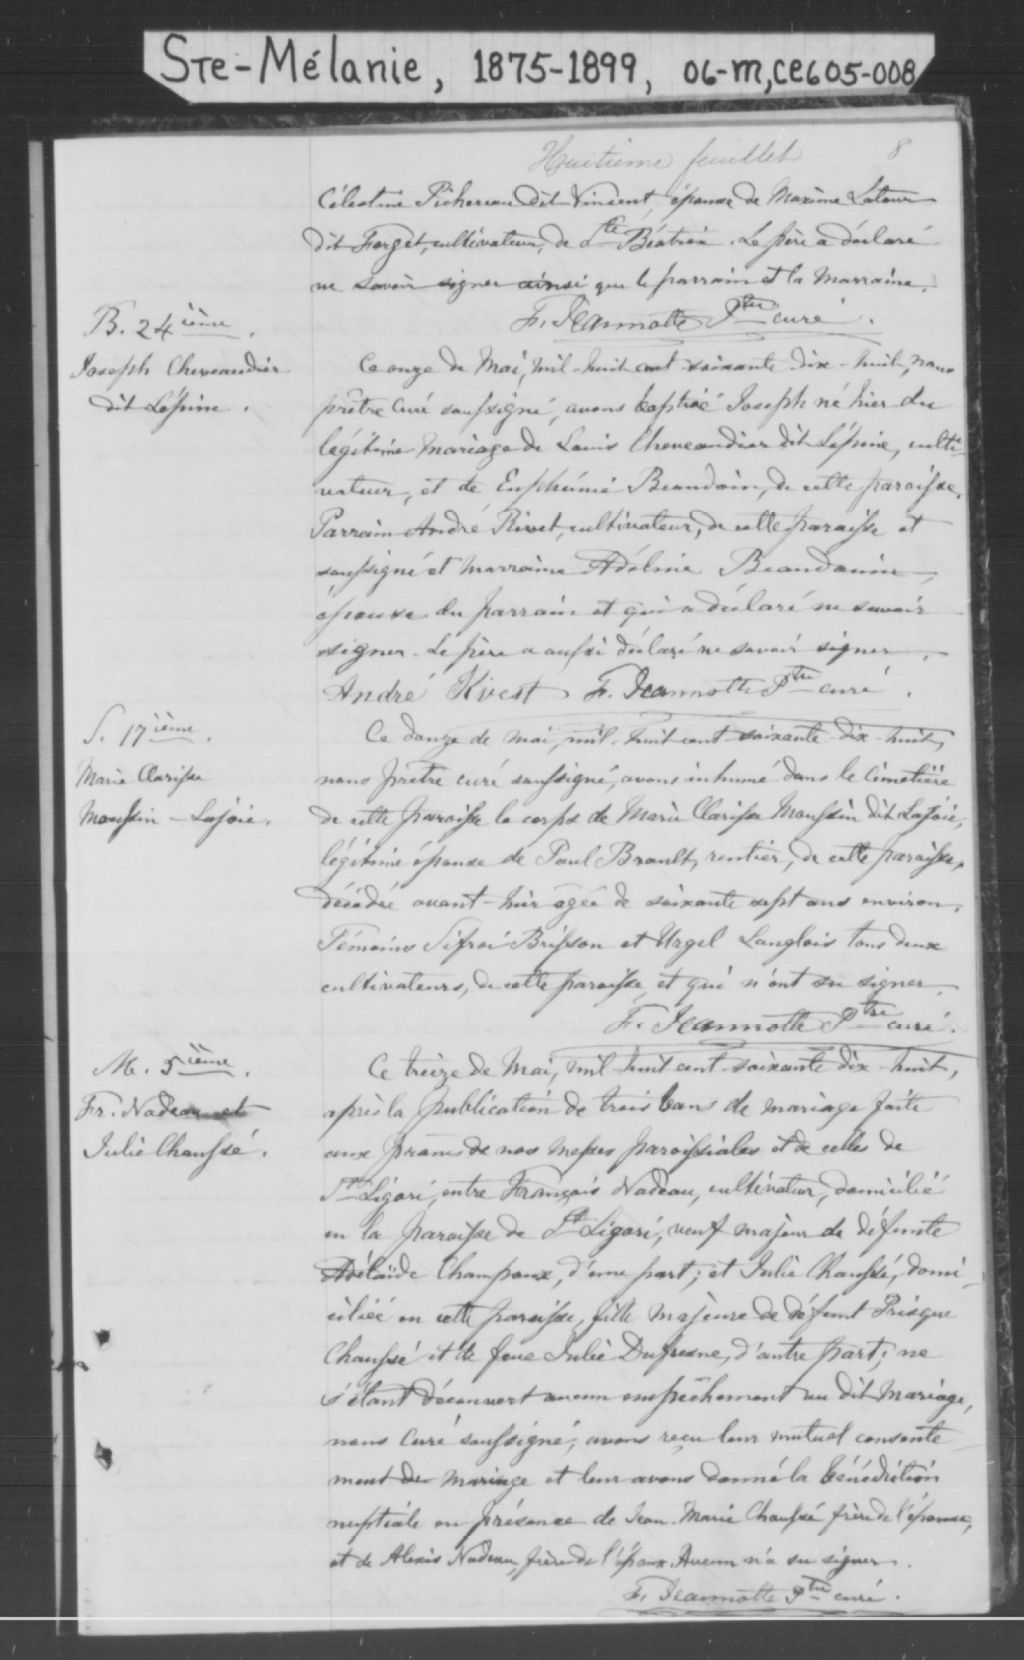 Ste-Mélanie, 1875-1899, 06-M,CE605-008
Huitième feuillet 8
Célestine Pichereau dit Vincent, épouse de Maxime Latour
dit Forget, cultivateur, de Ste Béatrix. Le père a déclaré
ne savoir signer ainsi que le parrain et la Marraine.
F. Jeannotte Ptre curé.
B. 24ième.
Joseph Cheveaudier
dit Lépine.
Ce onze de Mai, mil-huit cent soixante dix-huit, nous
prêtre Curé soussigné, avons baptisé Joseph né hier du
légitime mariage de Louis Cheveaudier dit Lépine, culti-
vateur, et de Euphémie Beaudoin, de cette paroisse.
Parrain André Rivet, cultivateur, de cette paroisse et
soussigné et marraine Adéline Beaudouin,
épouse du parrain et qui a déclaré ne savoir
signer. Le père a aussi déclaré ne savoir signer.
André Rivest F. Jeannotte Ptre curé.
S. 17ième.
Marie Clarisse
Moussin - Lajoie.
Ce douze de mai, mil-huit cent soixante-dix-huit,
nous prêtre curé soussigné, avons inhumé dans le cimetière
de cette paroisse le corps de Marie Clarisse Moussin dit Lajoie,
légitime épouse de Paul Brault, rentier, de cette paroisse,
décédée avant-hier âgée de soixante sept ans environ.
Témoins Sifroi Brisson et Urgel Langlois tous deux
cultivateurs, de cette paroisse, et qui n'ont su signer.
F. Jeannotte Ptre curé.
M. 5ième.
Fr. Nadeau et
Julie Chaussé.
Ce treize de Mai, mil-huit cent-soixante dix-huit,
après la publication de trois bans de mariage faite
aux prônes de nos messes paroissiales et de celles de
St Ligori, entre François Nadeau, cultivateur, domicilié
en la paroisse de St Ligori, veuf majeur de défunte
Adélaïde Champoux, d'une part; et Julie Chaussé, domi-
ciliée en cette paroisse, fille majeure de défunt Prisque
Chaussé et de feue Julie Dufresne, d'autre part; ne
s'étant découvert aucun empêchement au dit Mariage,
nous Curé soussigné, avons reçu leur mutuel consente
ment de mariage et leur avons donné la bénédiction
nuptiale en présence de Jean-Marie Chaussé frère de l'épouse,
et de Alexis Nadeau, frère de l'époux. Aucun n'a su signer.
F. Jeannotte Ptre curé.